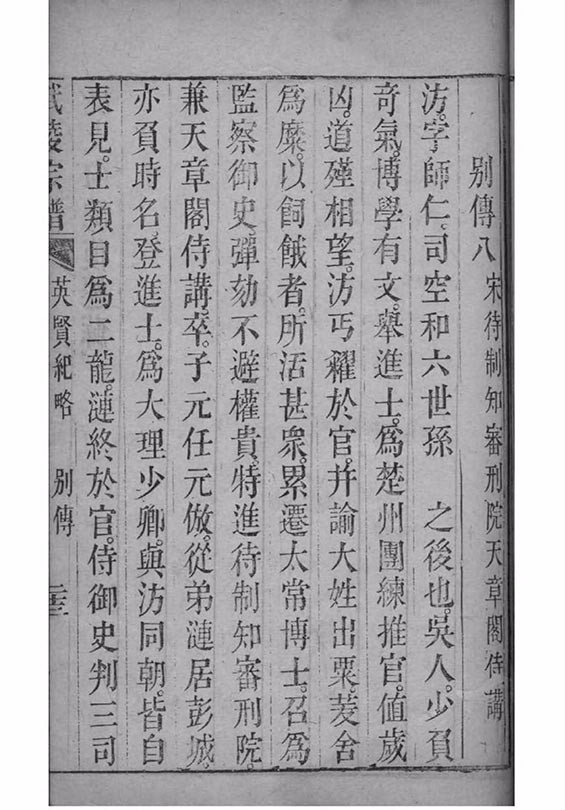 别傳八 宋待制知審刑院天章閣侍講
汸。字師仁。司空和六世孫 之後也。吳人。少負
奇氣。博學有文。舉進士。爲楚州團練推官。值歲
凶。道殣相望。汸丐糴於官。幷諭大姓出粟。茇舍
爲糜。以飼餓者。所活甚衆。累遷太常博士。召爲
監察御史。彈劾不避權貴。特進待制知審刑院。
兼天章閣侍講。卒。子元任元倣。從弟漣居彭城。
亦負時名。登進士。爲大理少卿。與汸同朝。皆自
表見。士類目爲二龍。漣終於官。侍御史判三司
武陵宗譜 英賢紀略 别傳 二三